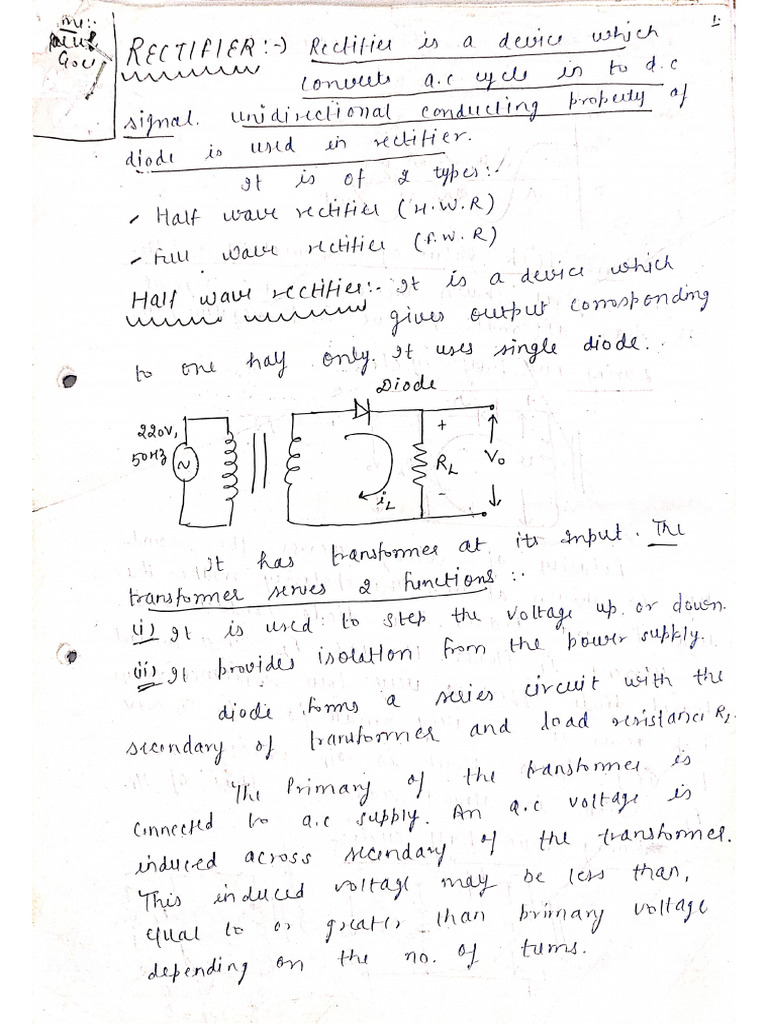 1.
RECTIFIER:-) Rectifier is a device which
converts a.c cycle in to d.c
signal. Unidirectional conducting property of
diode is used in rectifier.
It is of 2 types:-
Half wave rectifier (H.W.R)
Full wave rectifier (F.W.R)
Half wave rectifier:- It is a device which
gives output corrosponding
to one half only. It uses single diode.
Diode
220V,
50Hz
+
RL
-
Vo
iL
It has transformer at its input. The
transformer serves 2 functions:-
(i) It is used to step the voltage up or down.
(ii) It provides isolation from the power supply.
diode forms a series circuit with the
secondary of transformer and load resistance RL.
The Primary of the transformer is
connected to a.c supply. An a.c voltage is
induced across secondary of the transformer.
This induced voltage may be less than,
equal to or greater than primary voltage
depending on the no. of turns.